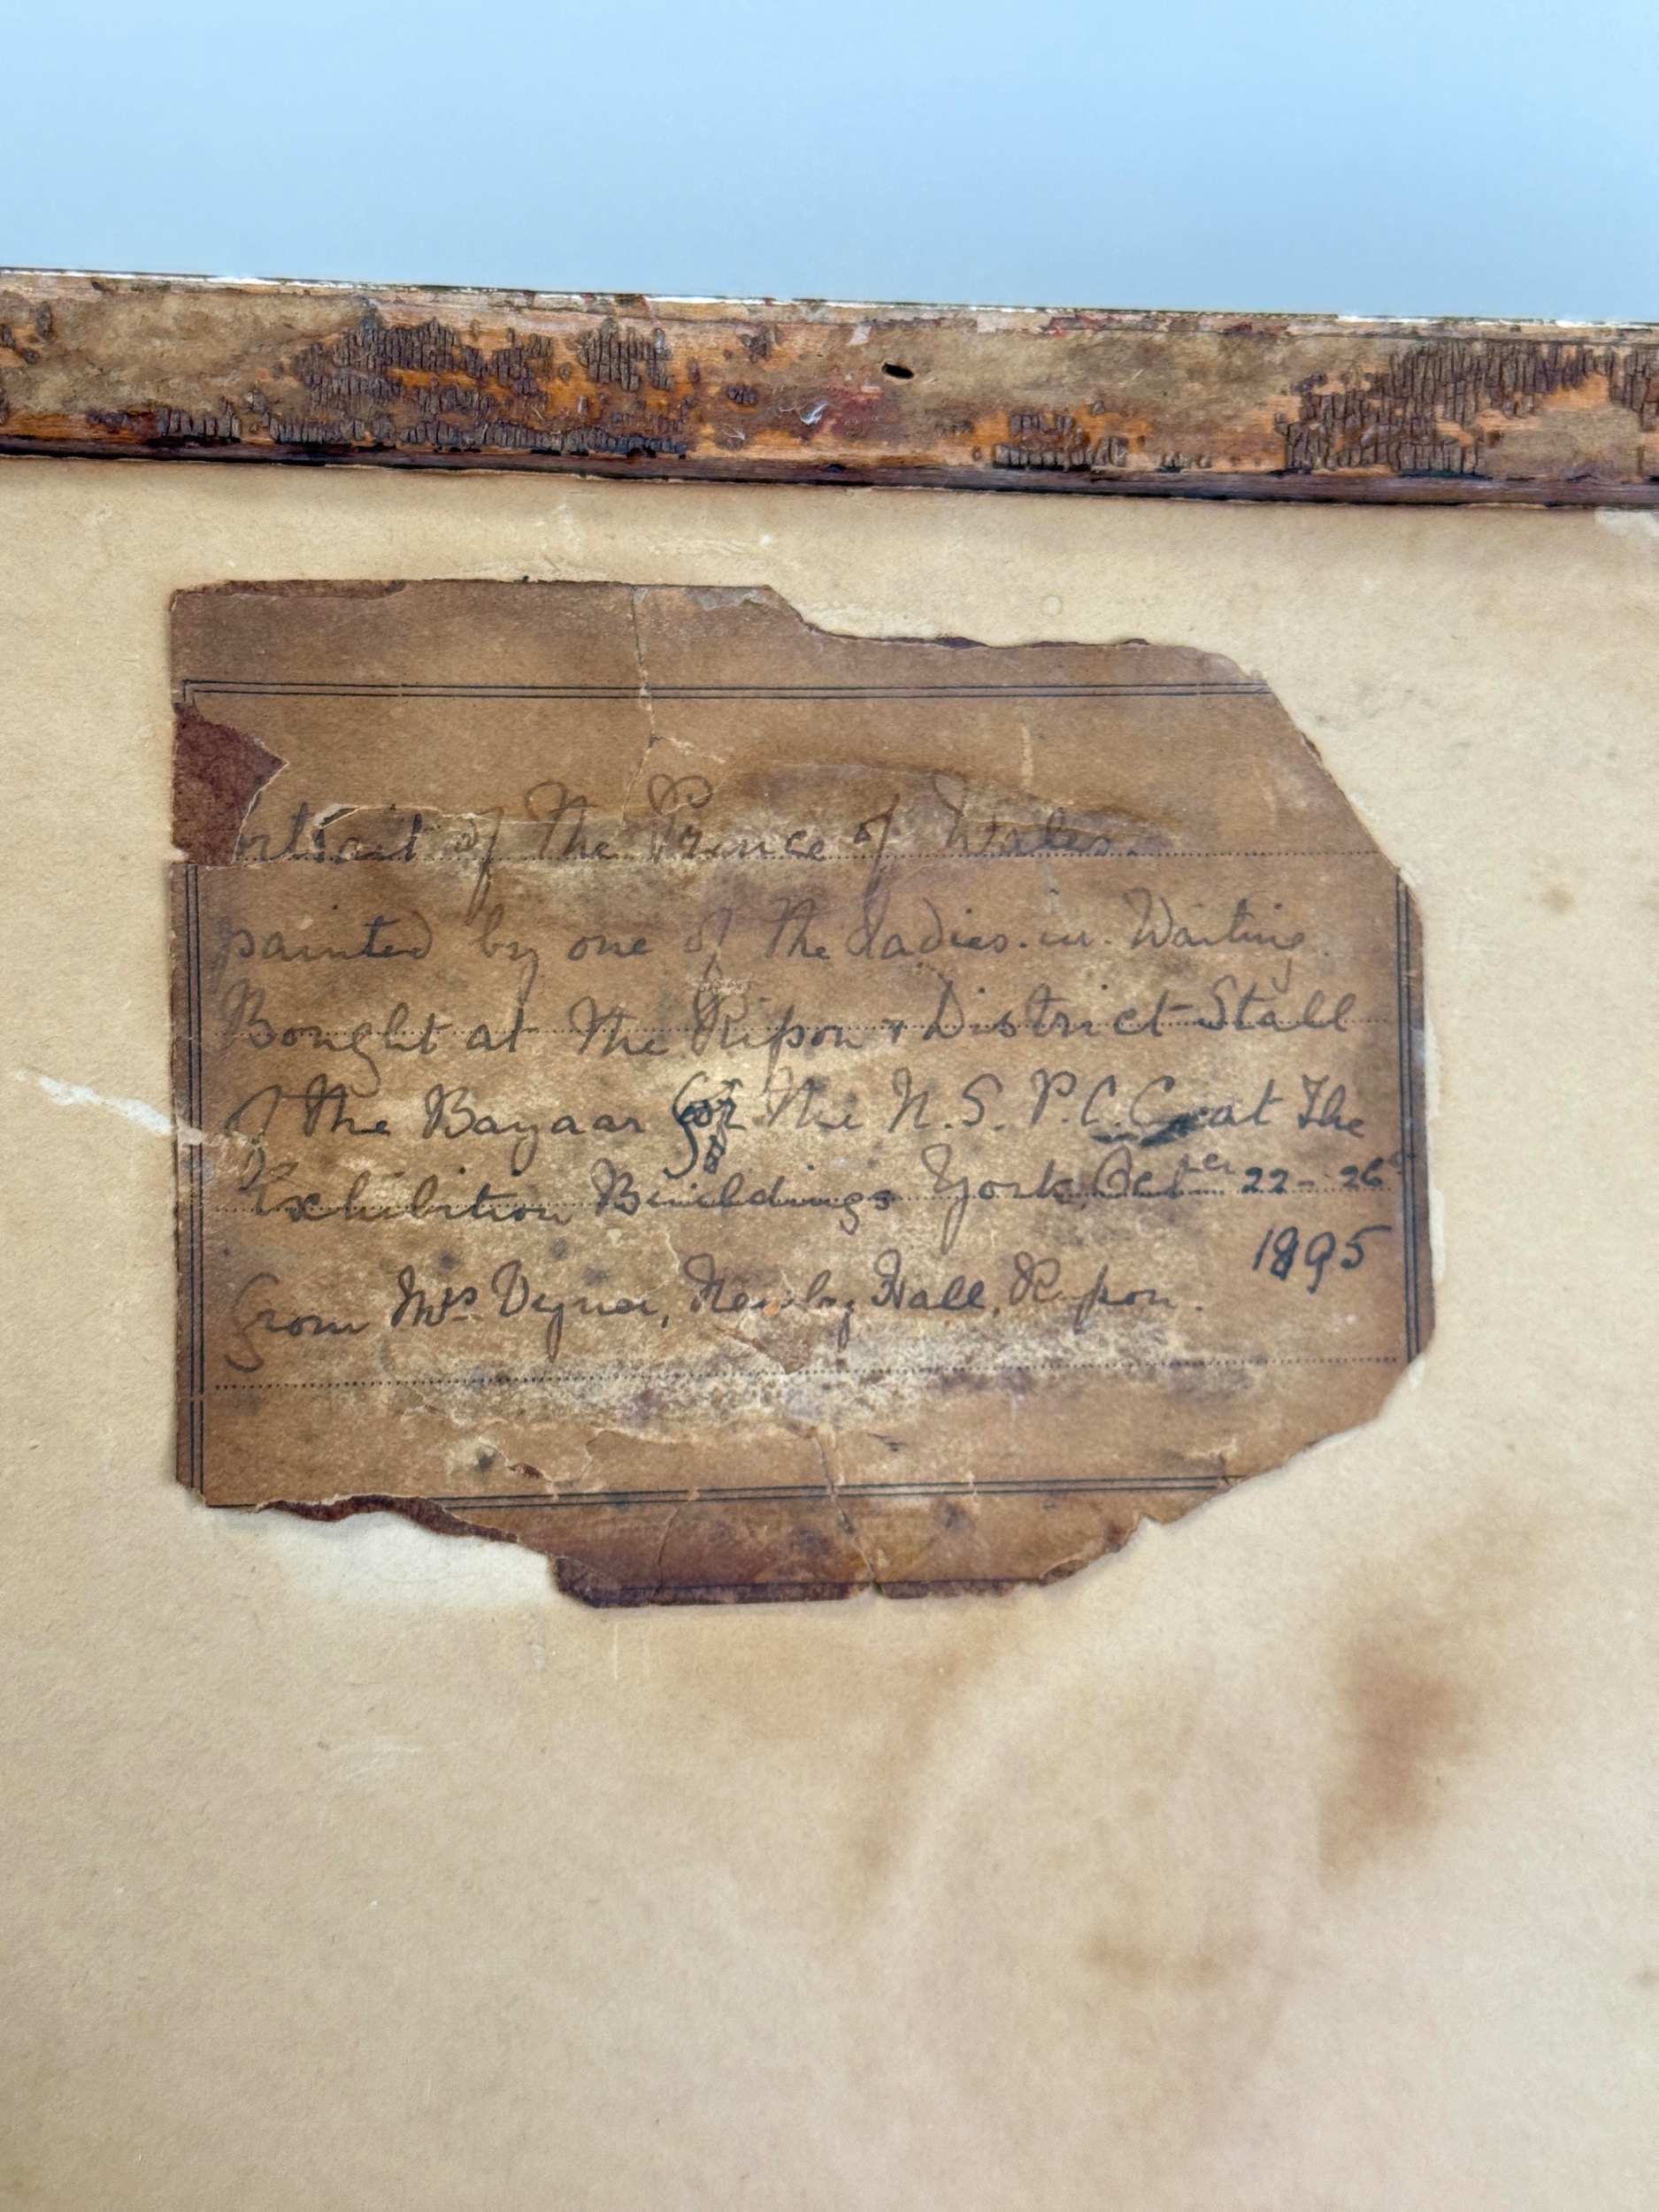 ortrait of The Prince of Wales.
painted by one of The Ladies. in. Waiting.
Bought at The Ripon & District Stall
of The Bazaar for The N.S.P.C.C. at The
Exhibition Buildings York, Octer 22-26
1895
from Mrs. Vyner, Newby Hall, Ripon.